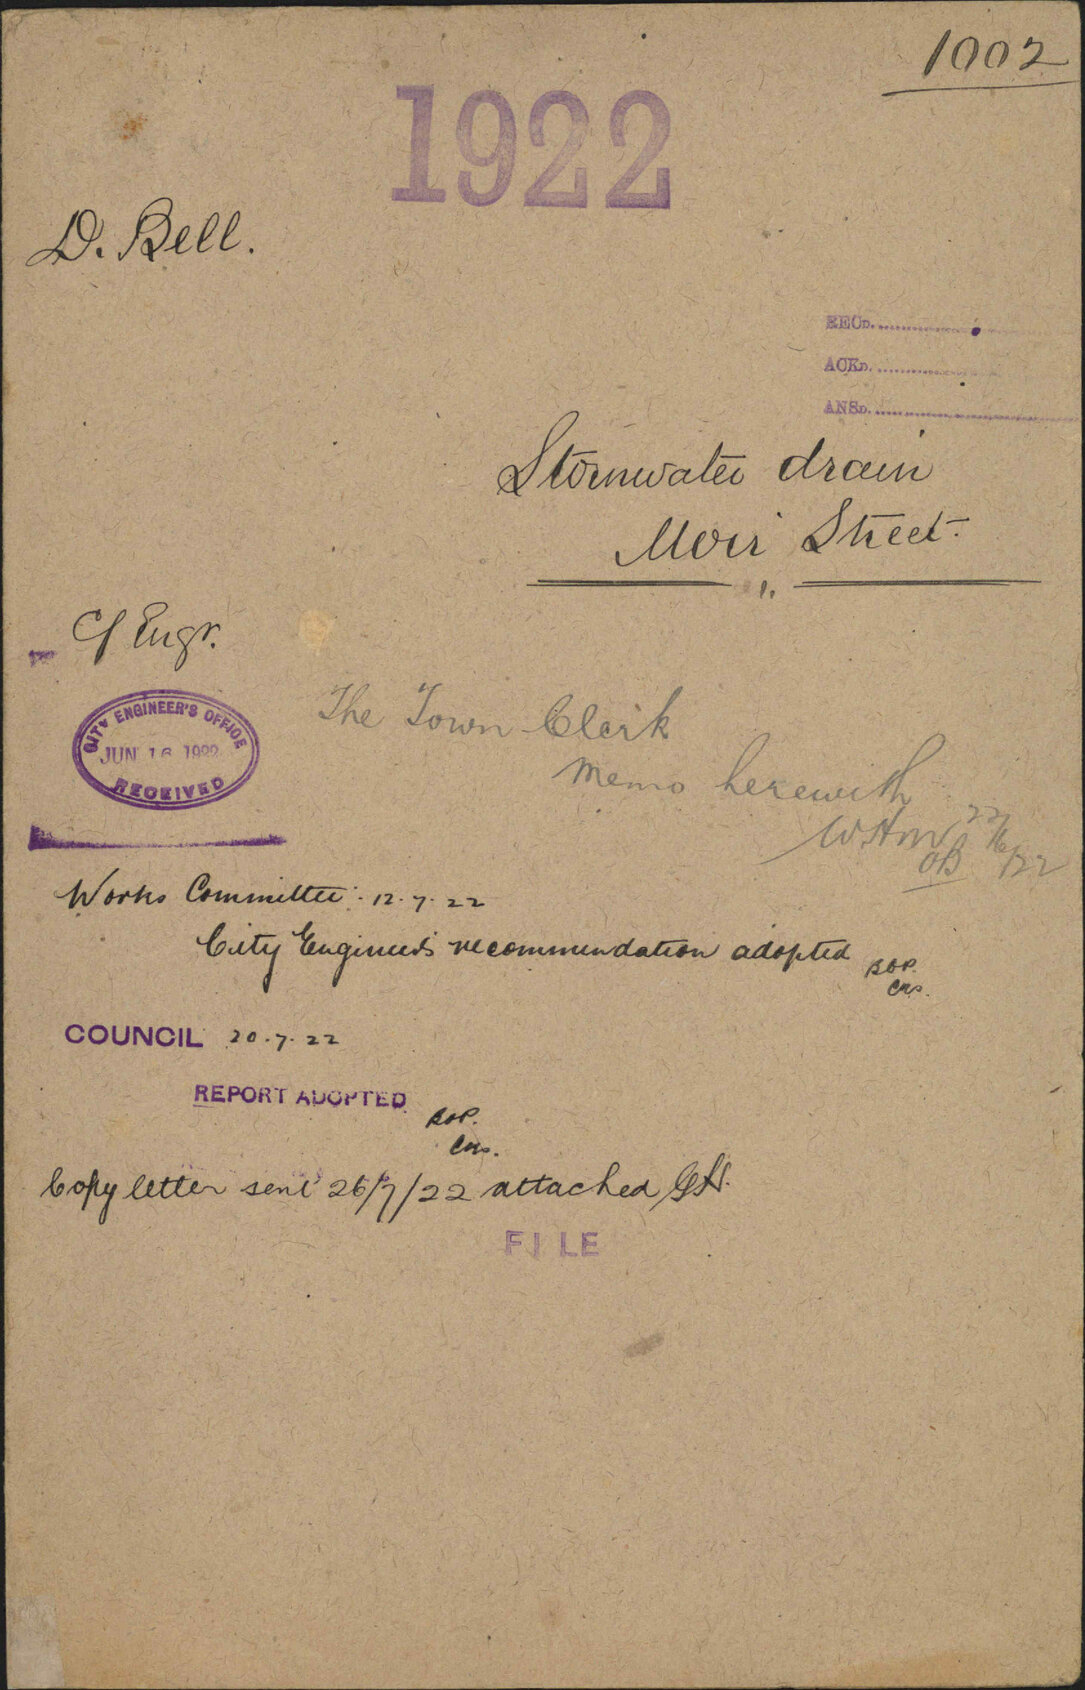 1002
1922
D. Bell.
RECD.
ACKD.
ANSD.
Stormwater drain
Moir Street.
C/Engr.
CITY ENGINEER'S OFFICE
JUN 16 1922
RECEIVED
The Town Clerk
Memo herewith
22/6/22
OB
Works Committee. 12.7.22
City Engineer's recommendation adopted
COUNCIL 20.7.22
REPORT ADOPTED
Copy letter sent 26/7/22 attached
FILE